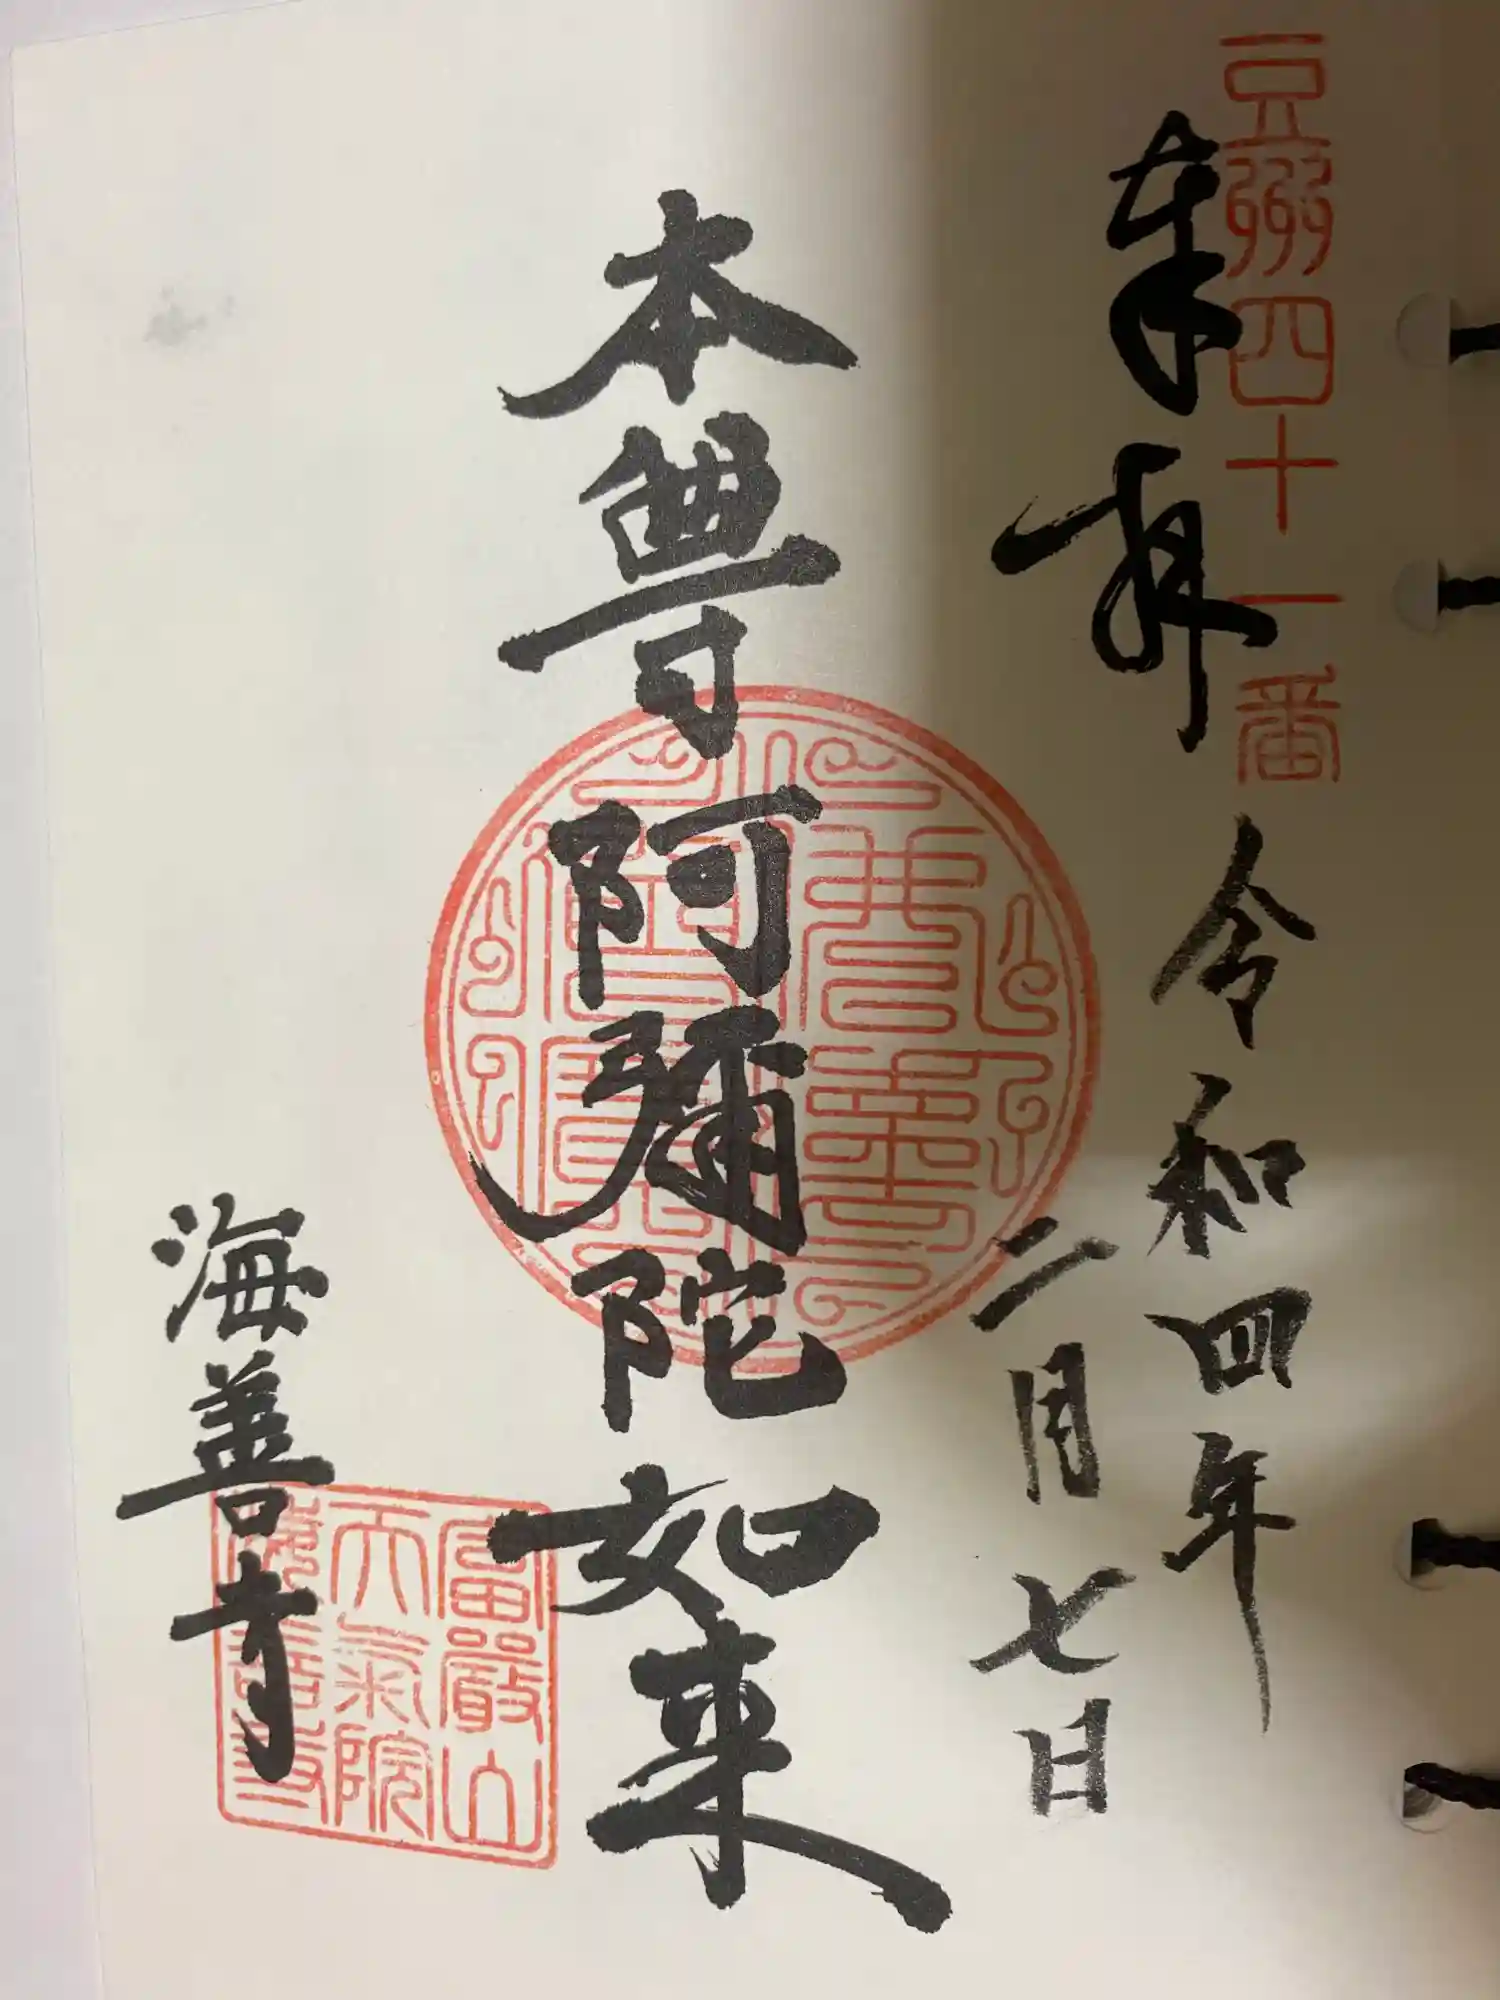 豆州四十一番
奉拝
令和四年
二月七日
本尊阿彌陀如来
海善寺
富巖山
天氣院
海善寺